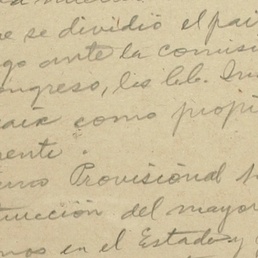 e se dividió el pai
go ante la comisi
ongreso, lis lib. In
aix como propi
ente.
erno Provisional
trucción del mayor
mos en el Estado y